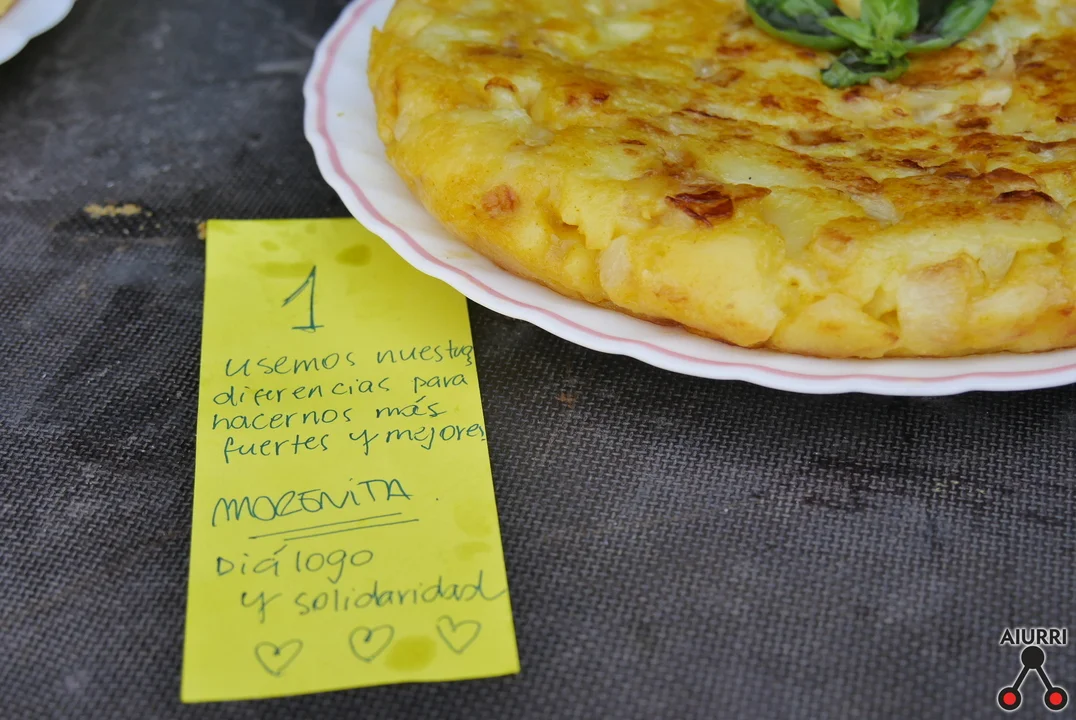 1
usemos nuestras
diferencias para
hacernos más
fuertes y mejores
MORENITA.
Diálogo
y solidaridad
AIURRI